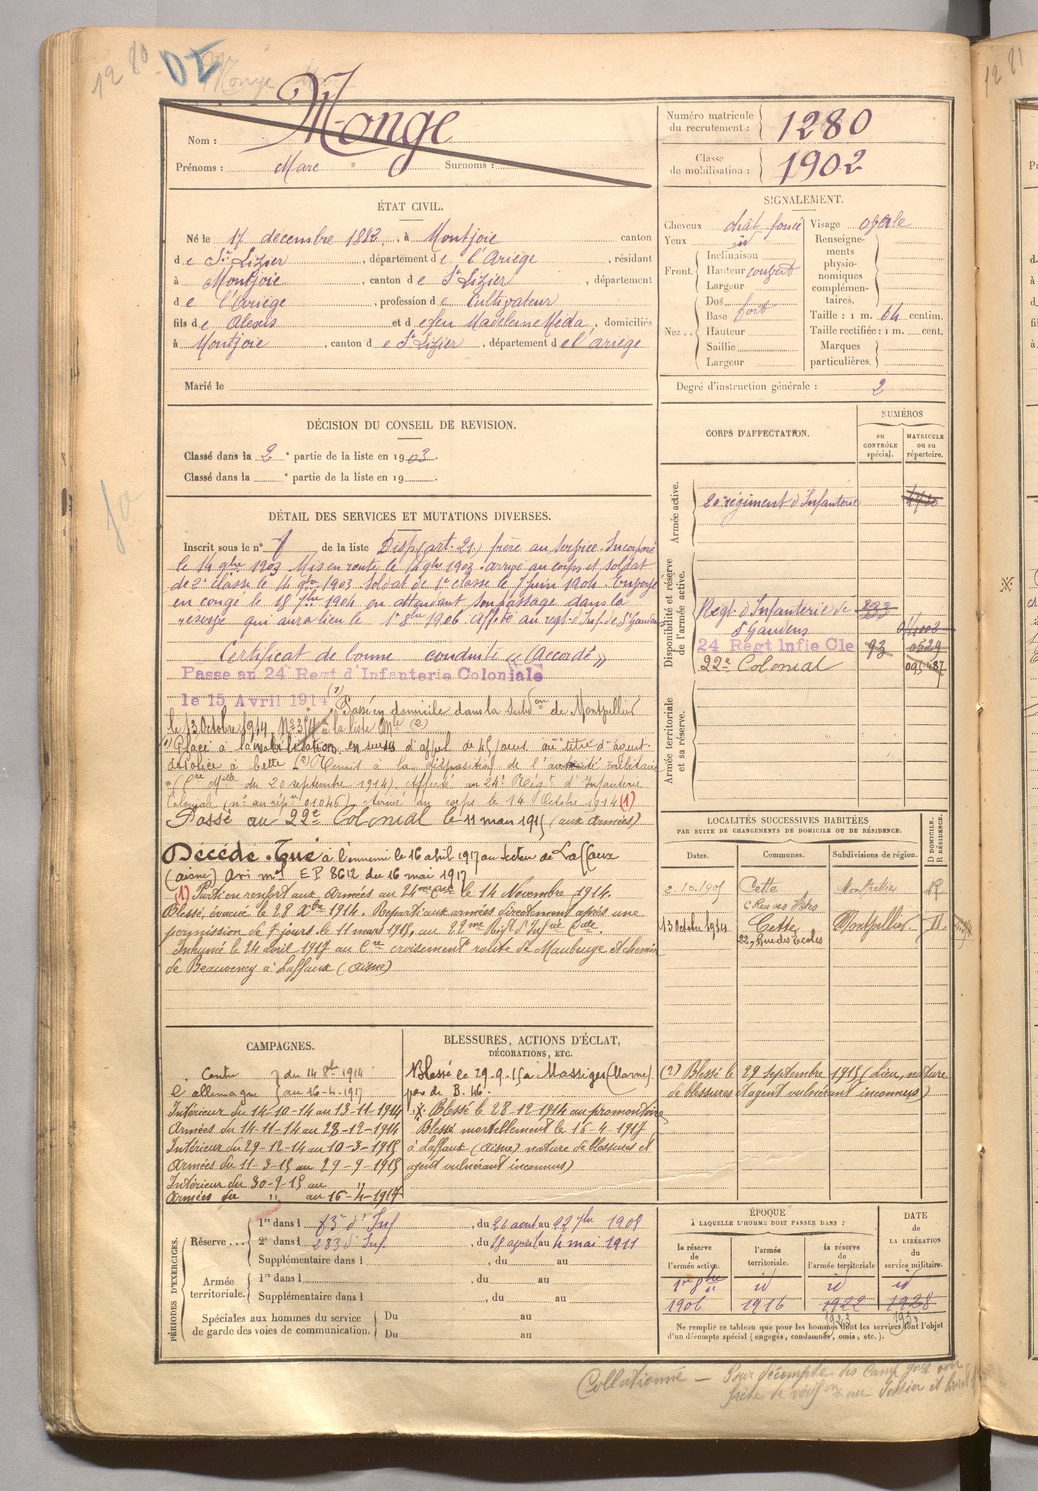 1280
DE
Nom : Monge
Prénoms : Marc Surnoms :
Numéro matricule du recrutement : 1280
Classe de mobilisation : 1902
ÉTAT CIVIL.
Né le 17 décembre 1882, à Montjoie canton
de St Lizier, département de l'Ariège, résidant
à Montjoie, canton de St Lizier, département
de l'Ariège, profession de Cultivateur
fils de Alexis et de feu Madeleine Méda, domiciliés
à Montjoie, canton de St Lizier, département de l'ariège
Marié le
SIGNALEMENT.
Cheveux chât foncé Visage ovale
Yeux id Renseignements physionomiques complémentaires.
Front. Inclinaison
Hauteur couvert
Largeur
Nez Dos
Base fort
Hauteur
Saillie
Largeur
Taille : 1 m. 64 centim.
Taille rectifiée : 1 m. cent.
Marques particulières.
Degré d'instruction générale : 2
DÉCISION DU CONSEIL DE REVISION.
Classé dans la 2e partie de la liste en 1903.
Classé dans la e partie de la liste en 19
DÉTAIL DES SERVICES ET MUTATIONS DIVERSES.
Inscrit sous le n° de la liste Disp (art. 21) frère au service Incorporé
le 14 9bre 1903 Mis en route le 14 9bre 1903 arrivé au corps et soldat
de 2e classe le 14 9bre 1903. Soldat de 1e classe le 7 juin 1904 Envoyé
en congé le 18 7bre 1904 en attendant son passage dans la
réserve qui aura lieu le 1er 8bre 1906 Affecté au regt d'Inf. de St Gaudens
Certificat de bonne conduite « Accordé »
Passe au 24 Regt d'Infanterie Coloniale
le 15 Avril 1914
Passé en domicile dans la Subdon de Montpellier
le 13 Octobre 1914 à la liste Mle (2)
Placé à la mobilisation en sursis d'appel de 45 jours au titre d'agent
de police à Cette (2) Remis à la disposition de l'autorité militaire
du 20 septembre 1914) Affecté au 24e Régt d'Infanterie
Colonial (n° au rép. 01046) Arrivé au corps le 14 Octobre 1914 (1)
Passé au 22e Colonial le 11 mars 1915 (aux armées)
Décédé. Tué à l'ennemi le 16 avril 1917 au secteur de Laffaux
(aisne) avis mel EP 8612 du 16 mai 1917
(1) Parti en renfort aux armées au 24me le 14 Novembre 1914.
Blessé, évacué le 28 Xbre 1914. Reparti aux armées directement après une
permission de 7 jours le 11 mars 1915, au 22me Regt d'Infrie Cale.
Inhumé le 24 avril 1917 au Cre croisement route de Maubeuge et chemin
de Beauvency à Laffaux (aisne)
CORPS D'AFFECTATION.
NUMÉROS
au CONTRÔLE spécial.
MATRICULE ou au répertoire.
Armée active.
Disponibilité et réserve de l'armée active.
Armée territoriale et sa réserve.
20e régiment d'Infanterie
Regt d'Infanterie de 283
St Gaudens
24 Régt Infie Cle 93 0629
22e Colonial
LOCALITÉS SUCCESSIVES HABITÉES
PAR SUITE DE CHANGEMENTS DE DOMICILE OU DE RÉSIDENCE.
Dates. Communes. Subdivisions de région. D DOMICILE. R RÉSIDENCE.
Cette Montpellier R
13 Octobre 1914 Cette Montpellier
22, Rue des Écoles
(2) Blessé le 29 septembre 1915 (Lieu, nature
de blessures et agent vulnérant inconnus)
CAMPAGNES.
Contre du 14 8bre 1914
L'allemagne au 16-4-1917
Intérieur du 14-10-14 au 13-11-1914
Armées du 14-11-14 au 28-12-1914
Intérieur du 29-12-14 au 10-3-1915
Armées du 11-3-15 au 29-9-1915
Intérieur du 30-9-15 au
Armées du " au 16-4-1917
BLESSURES, ACTIONS D'ÉCLAT,
DÉCORATIONS, ETC.
Blessé le 29-9-15 à Massiges (Marne)
Blessé le 28-12-1914 au promontoire
Blessé mortellement le 16-4-1917
à Laffaux (aisne) nature de blessures et
agent vulnérant inconnus)
PÉRIODES D'EXERCICES.
Réserve 1re dans l 83e d'Inf, du 26 aout au 22 7bre 1908
2e dans l 283 d'Inf., du 18 avril au 4 mai 1911
Supplémentaire dans l , du au
Armée territoriale. 1re dans l , du au
Supplémentaire dans l , du au
Spéciales aux hommes du service de garde des voies de communication. Du au
Du au
ÉPOQUE
À LAQUELLE L'HOMME DOIT PASSER DANS :
la réserve de l'armée active. l'armée territoriale. la réserve de l'armée territoriale
DATE DE LA LIBÉRATION du service militaire.
1er 8bre id id id
1906 1916 1922 1928
Ne remplir ce tableau que pour les hommes dont les services font l'objet
d'un décompte spécial (engagés, condamnés, omis, etc.).
Collationné